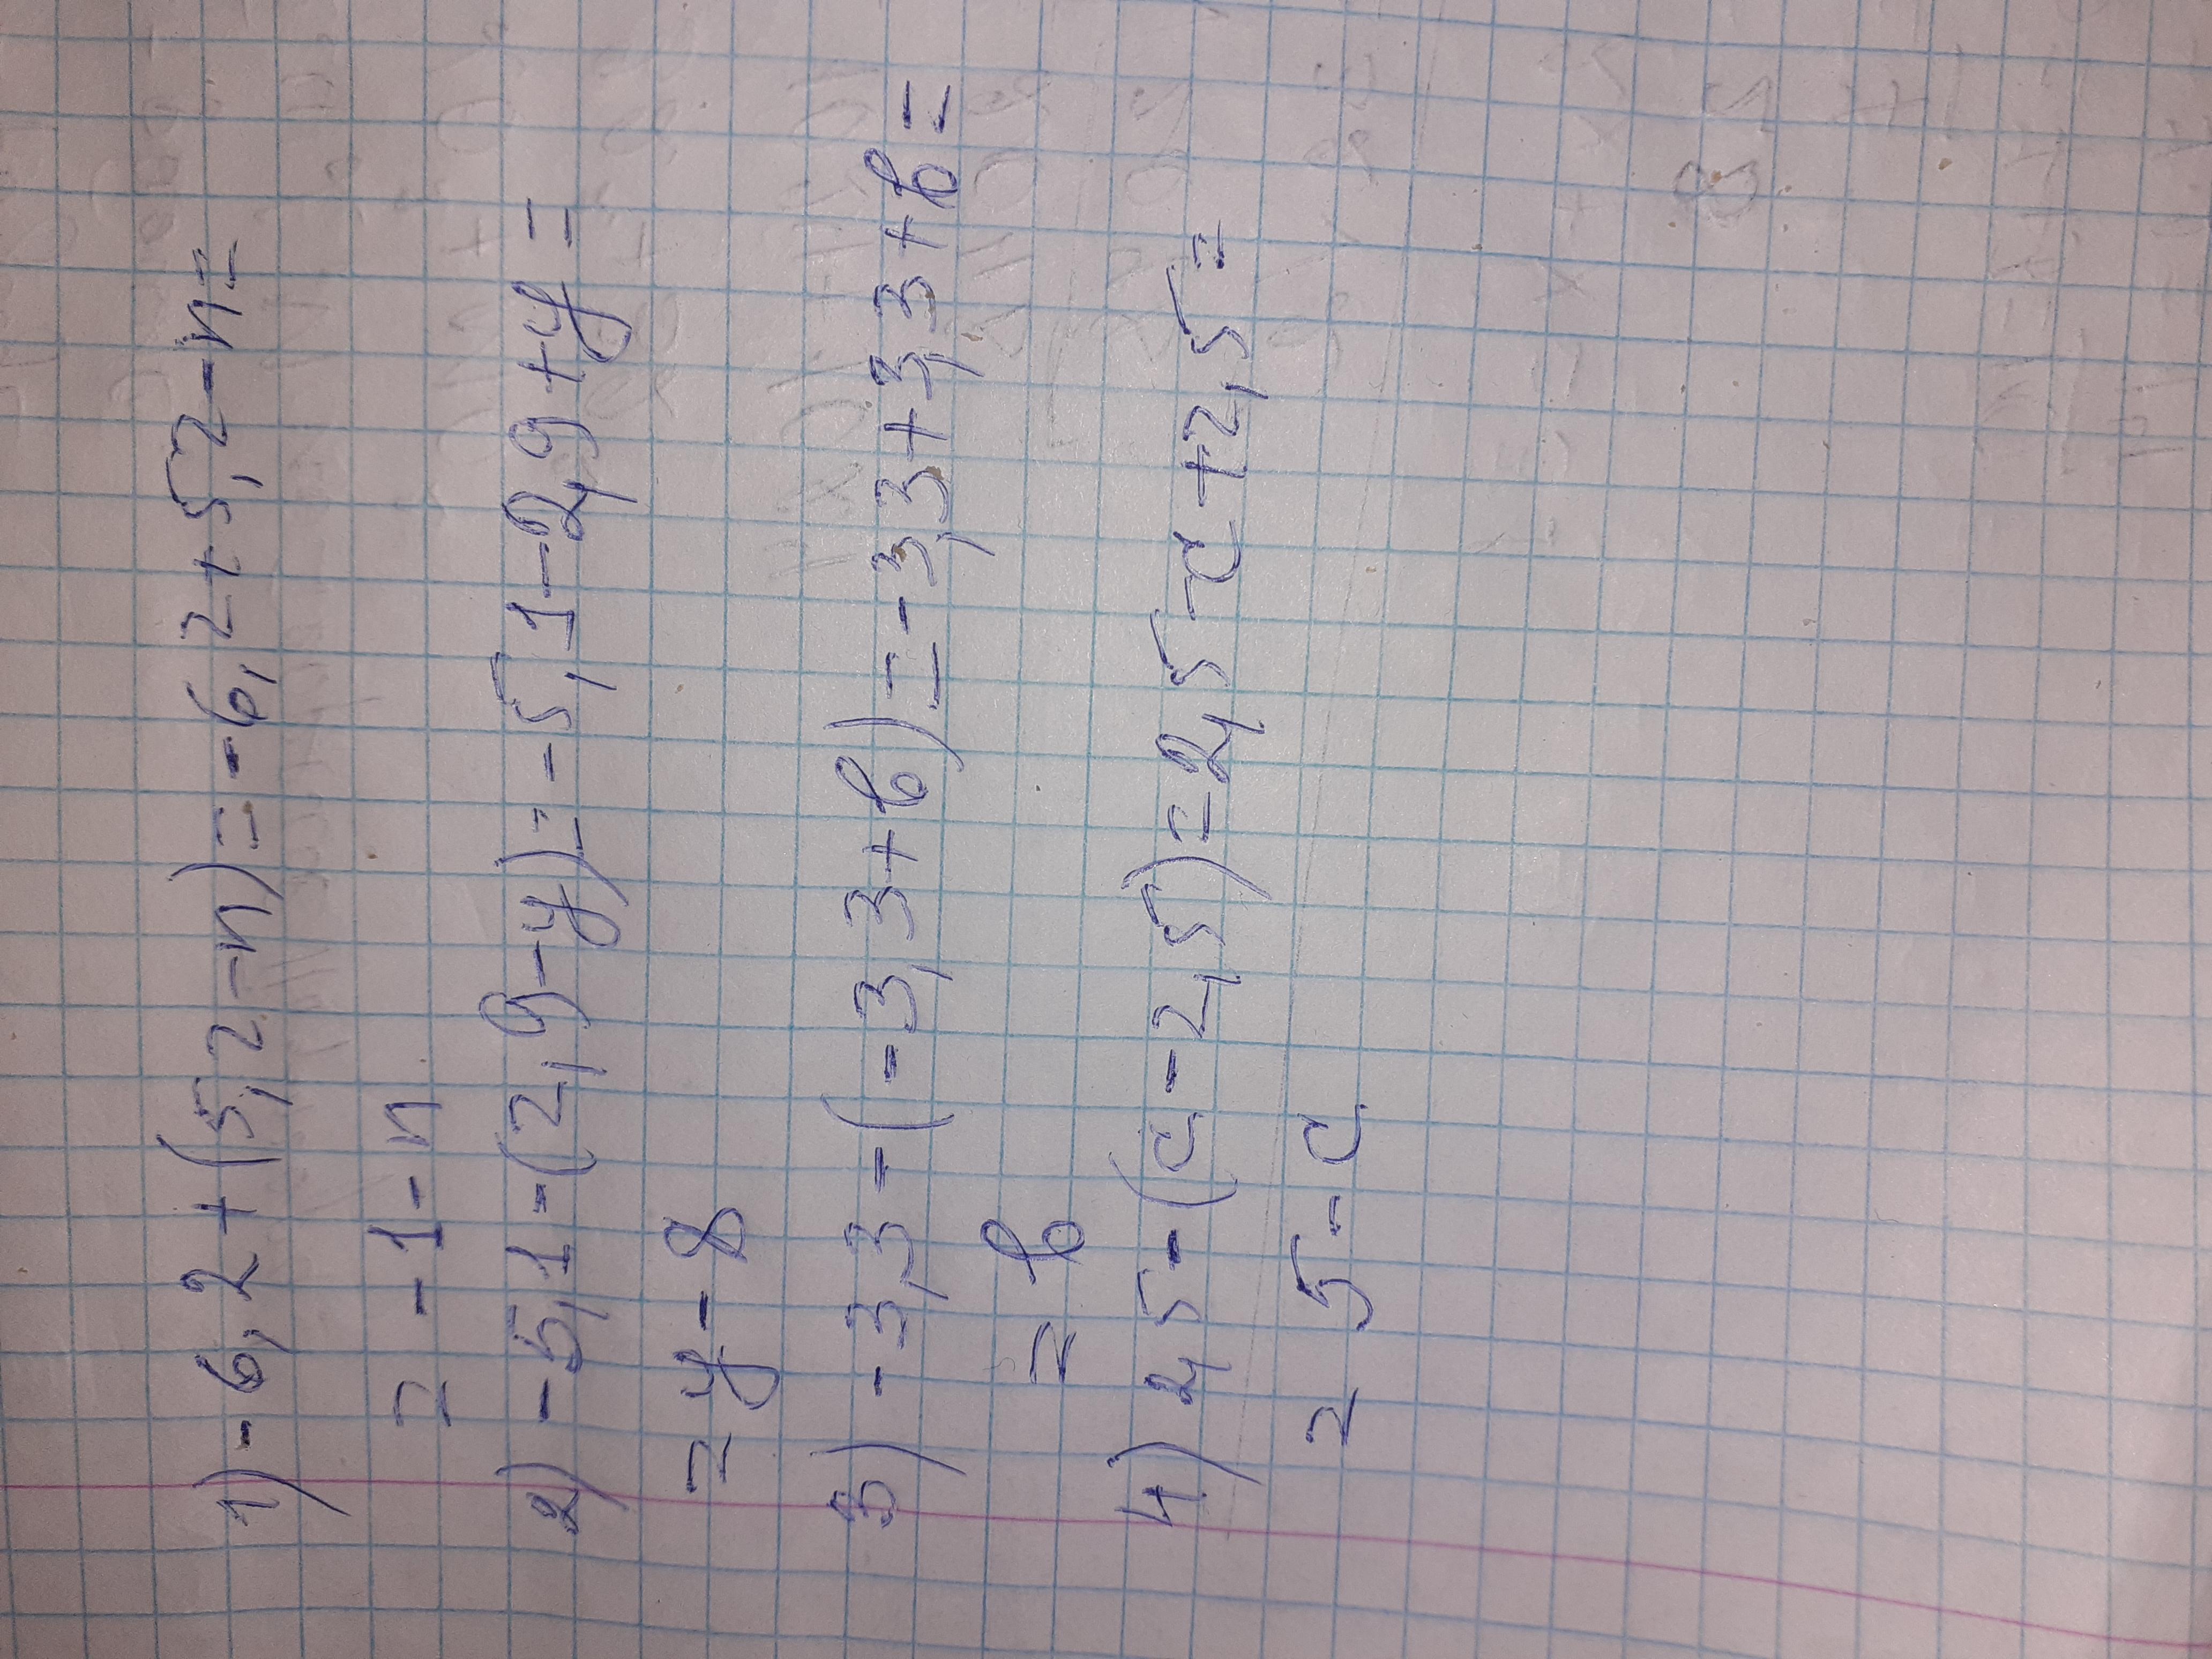 1) -6,2+(5,2-n)=-6,2+5,2-n=
= -1-n
2) -5,1-(2,9-y)=-5,1-2,9+y=
= y-8
3) -3,3-(-3,3+b)=-3,3+3,3+b=
= b
4) 2,5-(c-2,5)=2,5-c+2,5=
= 5-c